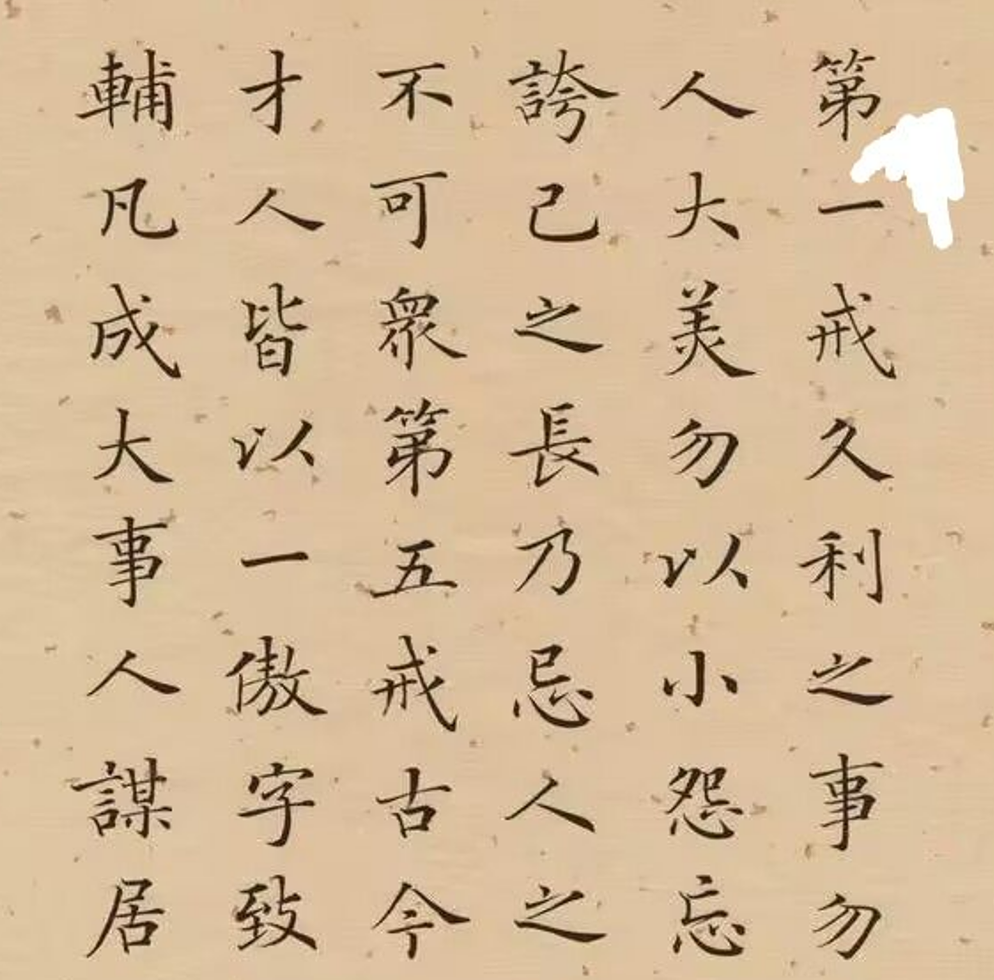 第一戒久利之事勿
人大美勿以小怨忘
誇己之長乃忌人之
不可衆第五戒古今
才人皆以一傲字致
輔凡成大事人謀居